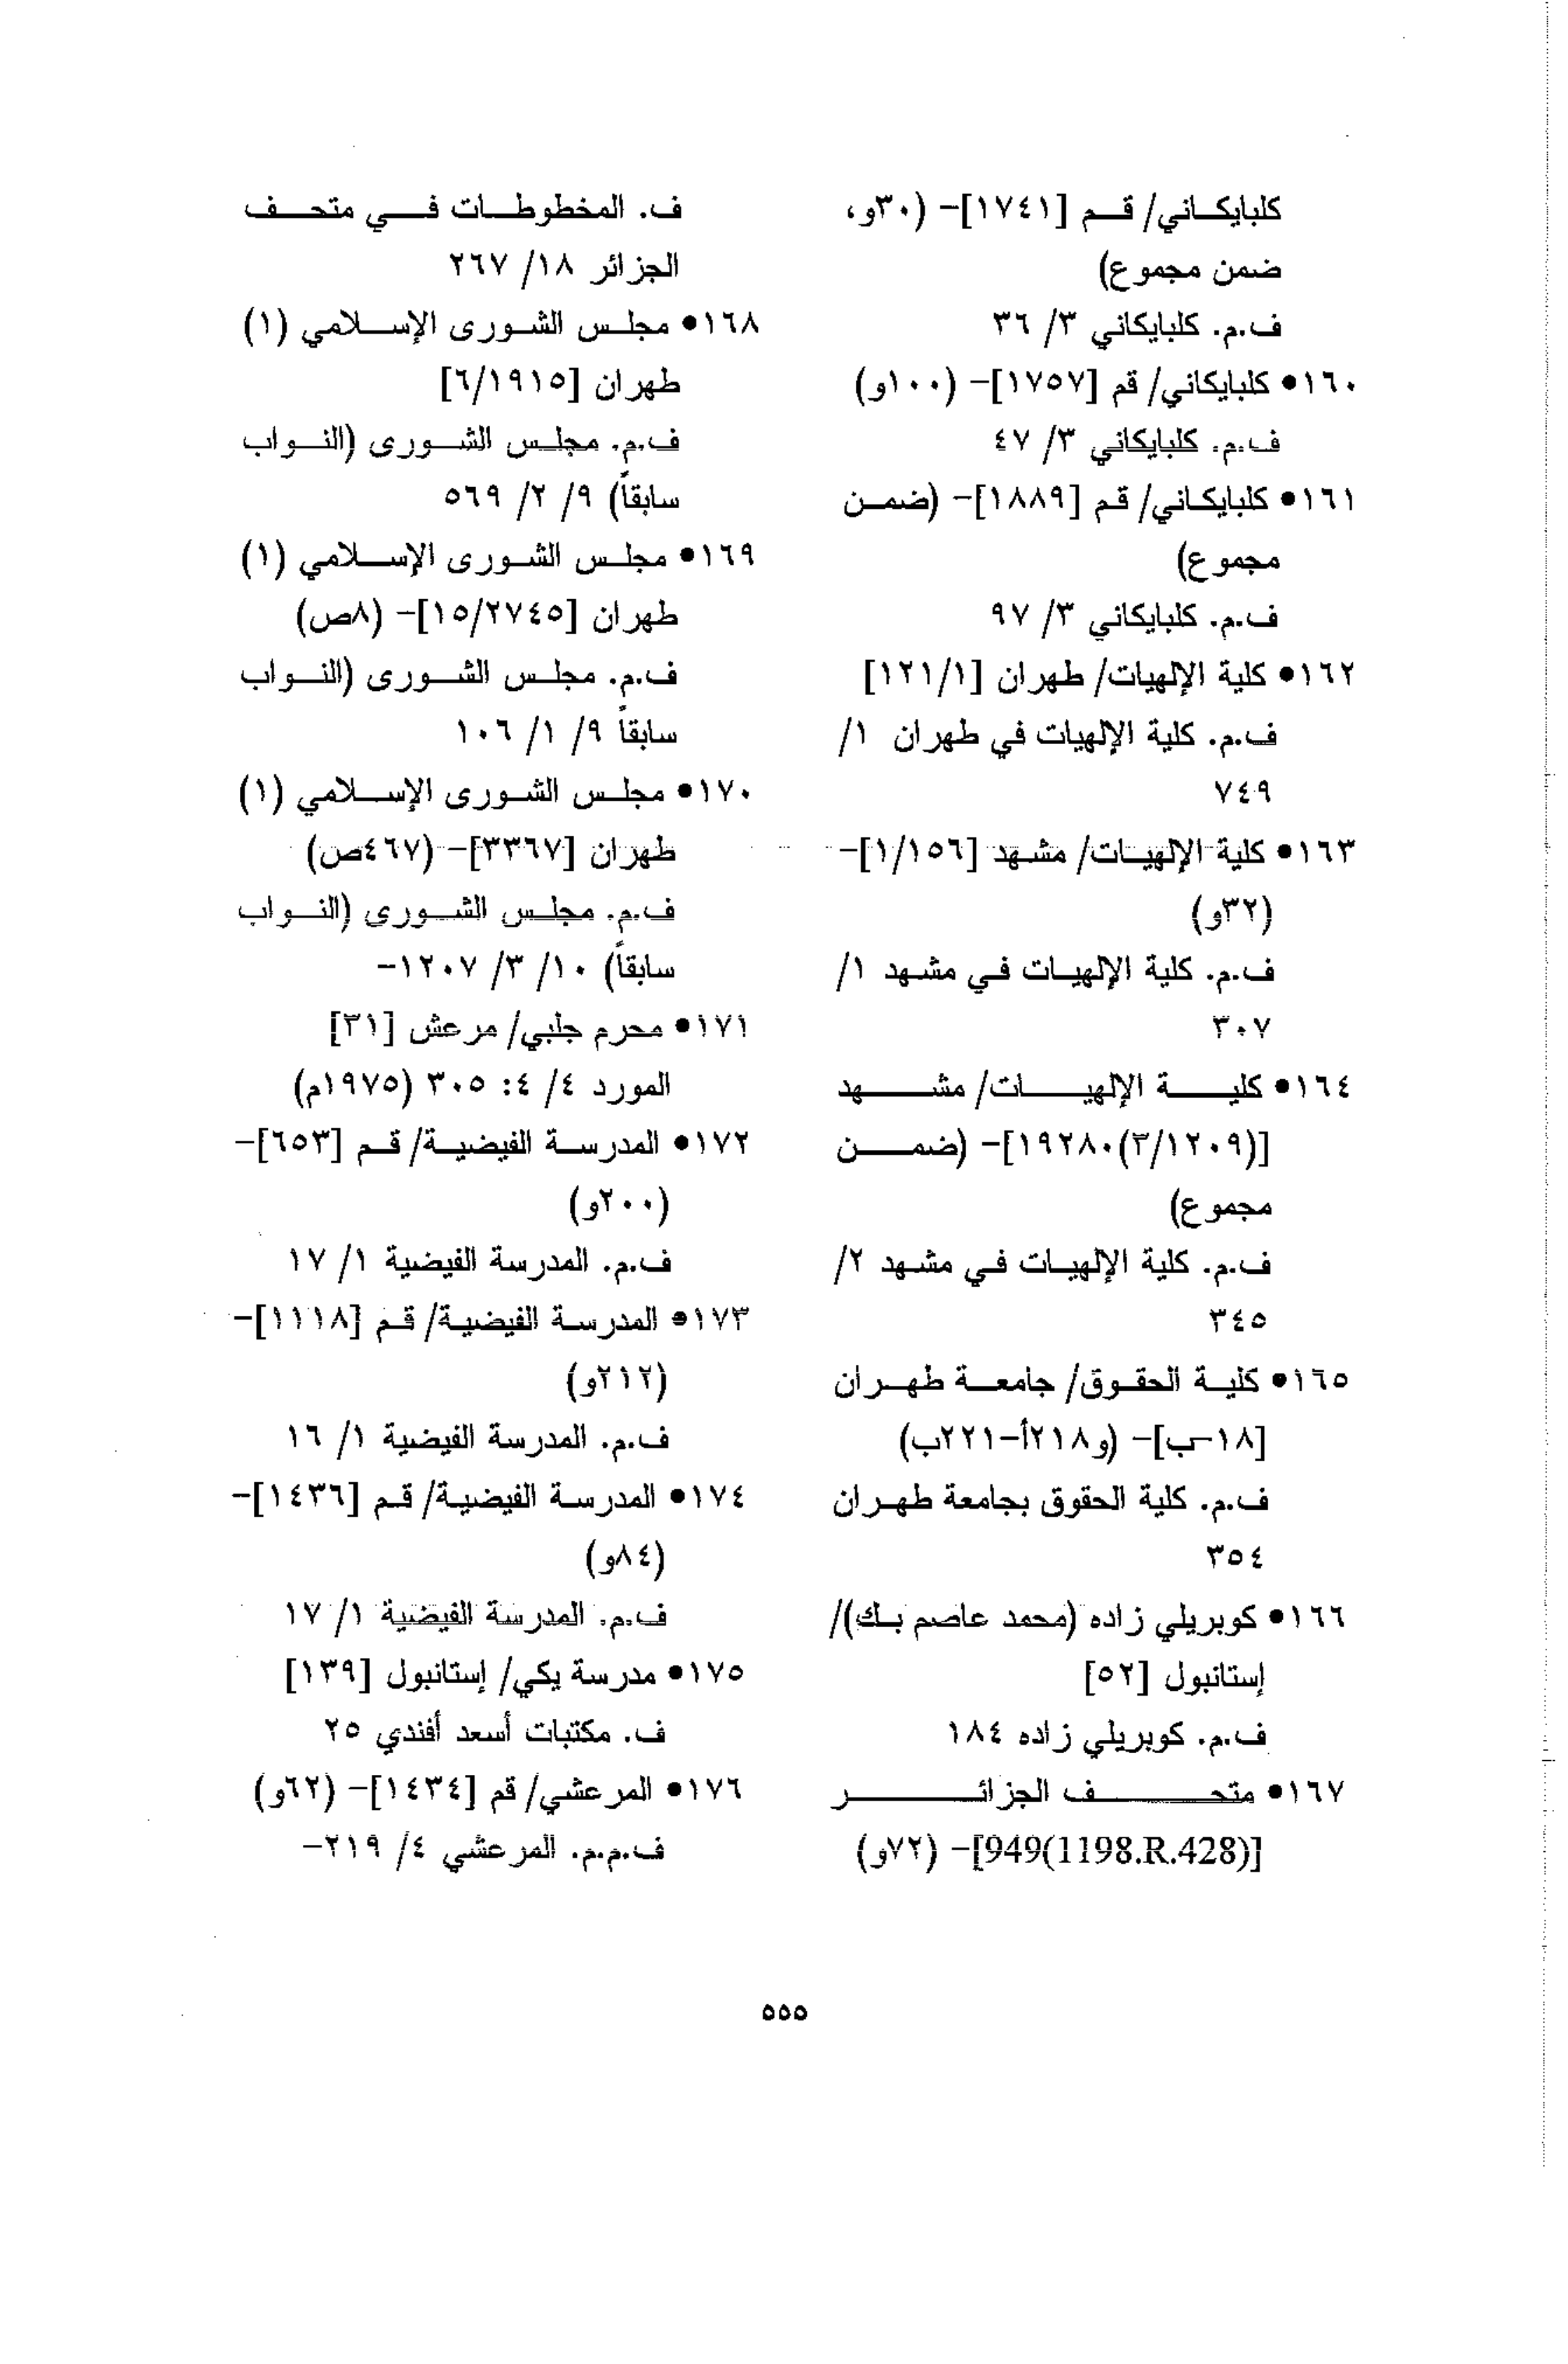 كلبايكاني/ قم [١٧٤١]- (٣٠و،
ضمن مجموع)
ف.م. كلبايكاني ٣/ ٣٦
١٦٠• كلبايكاني/ قم [١٧٥٧]- (١٠٠و)
ف.م. كلبايكاني ٣/ ٤٧
١٦١• كلبايكاني/ قم [١٨٨٩]- (ضمن
مجموع)
ف.م. كلبايكاني ٣/ ٩٧
١٦٢• كلية الإلهيات/ طهران [١٢١/١]
ف.م. كلية الإلهيات في طهران ١/
٧٤٩
١٦٣• كلية الإلهيات/ مشهد [١/١٥٦]-
(٣٢و)
ف.م. كلية الإلهيات في مشهد ١/
٣٠٧
١٦٤• كلية الإلهيات/ مشهد
[(٣/١٢٠٩)١٩٢٨٠]- (ضمن
مجموع)
ف.م. كلية الإلهيات في مشهد ٢/
٣٤٥
١٦٥• كلية الحقوق/ جامعة طهران
[١٨-ب]- (و٢١٨أ-٢٢١ب)
ف.م. كلية الحقوق بجامعة طهران
٣٥٤
١٦٦• كوبريلي زاده (محمد عاصم بك)/
إستانبول [٥٢]
ف.م. كوبريلي زاده ١٨٤
١٦٧• متحف الجزائر
[949(1198.R.428)]- (٧٢و)
ف. المخطوطات في متحف
الجزائر ١٨/ ٢٦٧
١٦٨• مجلس الشورى الإسلامي (١)
طهران [٦/١٩١٥]
ف.م. مجلس الشورى (النواب
سابقاً) ٩/ ٢/ ٥٦٩
١٦٩• مجلس الشورى الإسلامي (١)
طهران [١٥/٢٧٤٥]- (٨ص)
ف.م. مجلس الشورى (النواب
سابقاً ٩/ ١/ ١٠٦
١٧٠• مجلس الشورى الإسلامي (١)
طهران [٣٣٦٧]- (٤٦٧ص)
ف.م. مجلس الشورى (النواب
سابقاً) ١٠/ ٣/ ١٢٠٧-
١٧١• محرم جلبي/ مرعش [٣١]
المورد ٤/ ٤: ٣٠٥ (١٩٧٥م)
١٧٢• المدرسة الفيضية/ قم [٦٥٣]-
(٢٠٠و)
ف.م. المدرسة الفيضية ١/ ١٧
١٧٣• المدرسة الفيضية/ قم [١١١٨]-
(٢١٢و)
ف.م. المدرسة الفيضية ١/ ١٦
١٧٤• المدرسة الفيضية/ قم [١٤٣٦]-
(٨٤و)
ف.م. المدرسة الفيضية ١/ ١٧
١٧٥• مدرسة يكي/ إستانبول [١٣٩]
ف. مكتبات أسعد أفندي ٢٥
١٧٦• المرعشي/ قم [١٤٣٤]- (٦٢و)
ف.م.م. المرعشي ٤/ ٢١٩-
٥٥٥